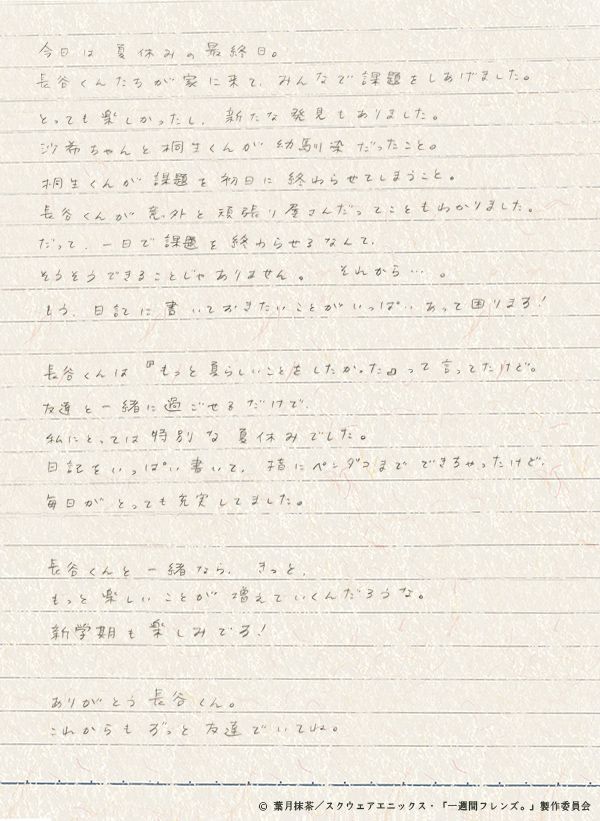 今日は夏休みの最終日。
長谷くんたちが家に来て、みんなで課題をしあげました。
とっても楽しかったし、新たな発見もありました。
沙希ちゃんと桐生くんが幼馴染だったこと。
桐生くんが課題を初日に終わらせてしまうこと。
長谷くんが意外と頑張り屋さんだってこともわかりました。
だって、一日で課題を終わらせるなんて、
そうそうできることじゃありません。 それから…。
もう、日記に書いておきたいことがいっぱいあって困ります!
長谷くんは『もっと夏らしいことをしたかった』って言ってたけど。
友達と一緒に過ごせるだけで、
私にとっては特別な夏休みでした。
日記をいっぱい書いて、指にペンダコまでできちゃったけど、
毎日がとっても充実してました。
長谷くんと一緒なら、きっと、
もっと楽しいことが増えていくんだろうな。
新学期も楽しみです!
ありがとう長谷くん。
これからもずっと友達でいてね。
© 葉月抹茶／スクウェアエニックス・「一週間フレンズ。」製作委員会